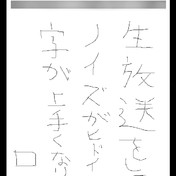 生放送をし
ノイズがヒドイ
字が上手くな